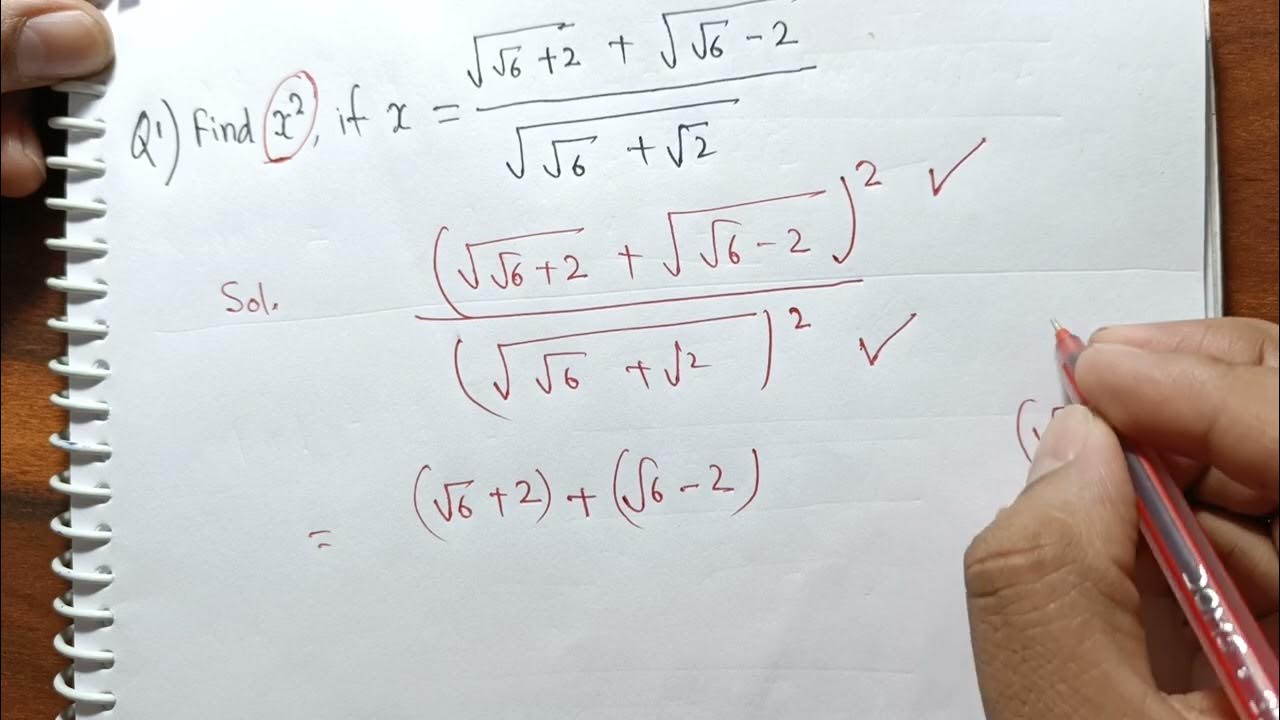 Q1) Find x², if x = (√(√6 + 2) + √(√6 - 2)) / √(√6 + √2)
Sol. (√(√6 + 2) + √(√6 - 2))² ✓ / (√(√6 + √2))² ✓
= (√6 + 2) + (√6 - 2)